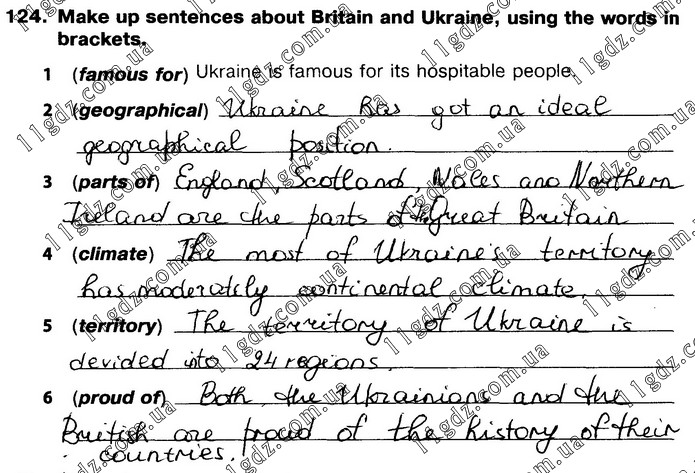 124. Make up sentences about Britain and Ukraine, using the words in
brackets.
1 (famous for) Ukraine is famous for its hospitable people.
2 (geographical) Ukraine has got an ideal
geographical position.
3 (parts of) England, Scotland, Wales and Northern
Ireland are the parts of Great Britain
4 (climate) The most of Ukraine's territory
has moderately continental climate.
5 (territory) The territory of Ukraine is
devided into 24 regions.
6 (proud of) Both the Ukrainians and the
British are proud of the history of their
countries.
11gdz.com.ua